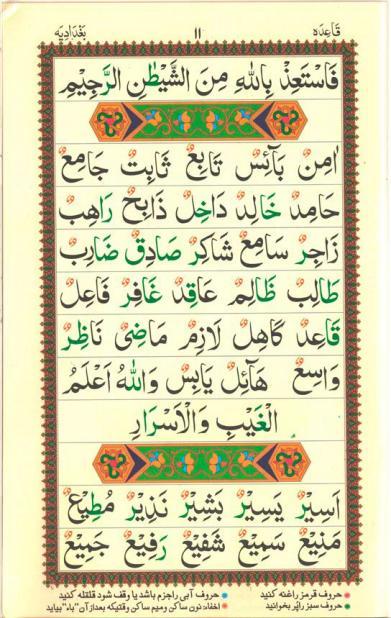 قاعده ١١ بغدادیه
فَاسْتَعِذْ بِاللهِ مِنَ الشَّيْطٰنِ الرَّجِيْمِ
اٰمِنٌ بَآئِسٌ تَابِعٌ ثَابِتٌ جَامِعٌ
حَامِدٌ خَالِدٌ دَاخِلٌ ذَابِحٌ رَاهِبٌ
زَاجِرٌ سَامِعٌ شَاكِرٌ صَادِقٌ ضَارِبٌ
طَالِبٌ ظَالِمٌ عَاقِدٌ غَافِرٌ فَاعِلٌ
قَاعِدٌ كَاهِلٌ لَازِمٌ مَاضِىٌ نَاظِرٌ
وَاسِعٌ هَآئِلٌ يَابِسٌ وَاللهُ اَعْلَمُ
الْغَيْبِ وَالْاَسْرَارِ
اَسِيْرٌ يَسِيْرٌ بَشِيْرٌ نَذِيْرٌ مُطِيْعٌ
مَنِيْعٌ سَمِيْعٌ شَفِيْعٌ رَفِيْعٌ جَمِيْعٌ
حروف قرمز راغنه کنید حروف آبی راجزم باشد یا وقف شود قلقله کنید
حروف سبز راپُر بخوانید اخفاء: نون ساکن ومیم ساکن وقتیکه بعداز آن "باء" بیاید